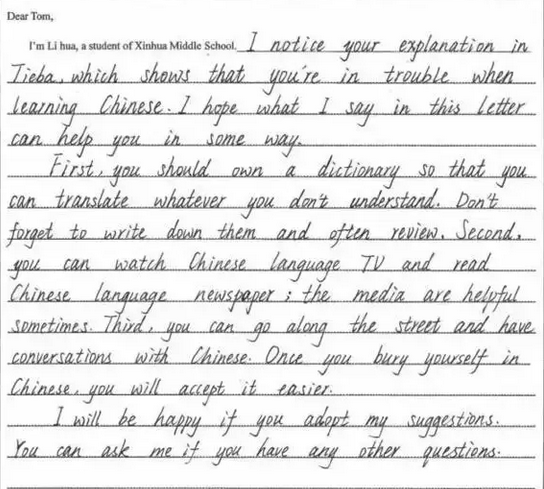 Dear Tom,
I'm Li hua, a student of Xinhua Middle School. I notice your explanation in
Tieba, which shows that you're in trouble when
learning Chinese. I hope what I say in this letter
can help you in some way.
First, you should own a dictionary so that you
can translate whatever you don't understand. Don't
forget to write down them and often review. Second,
you can watch Chinese language TV and read
Chinese language newspaper; the media are helpful
sometimes. Third, you can go along the street and have
conversations with Chinese. Once you bury yourself in
Chinese, you will accept it easier.
I will be happy if you adopt my suggestions.
You can ask me if you have any other questions.